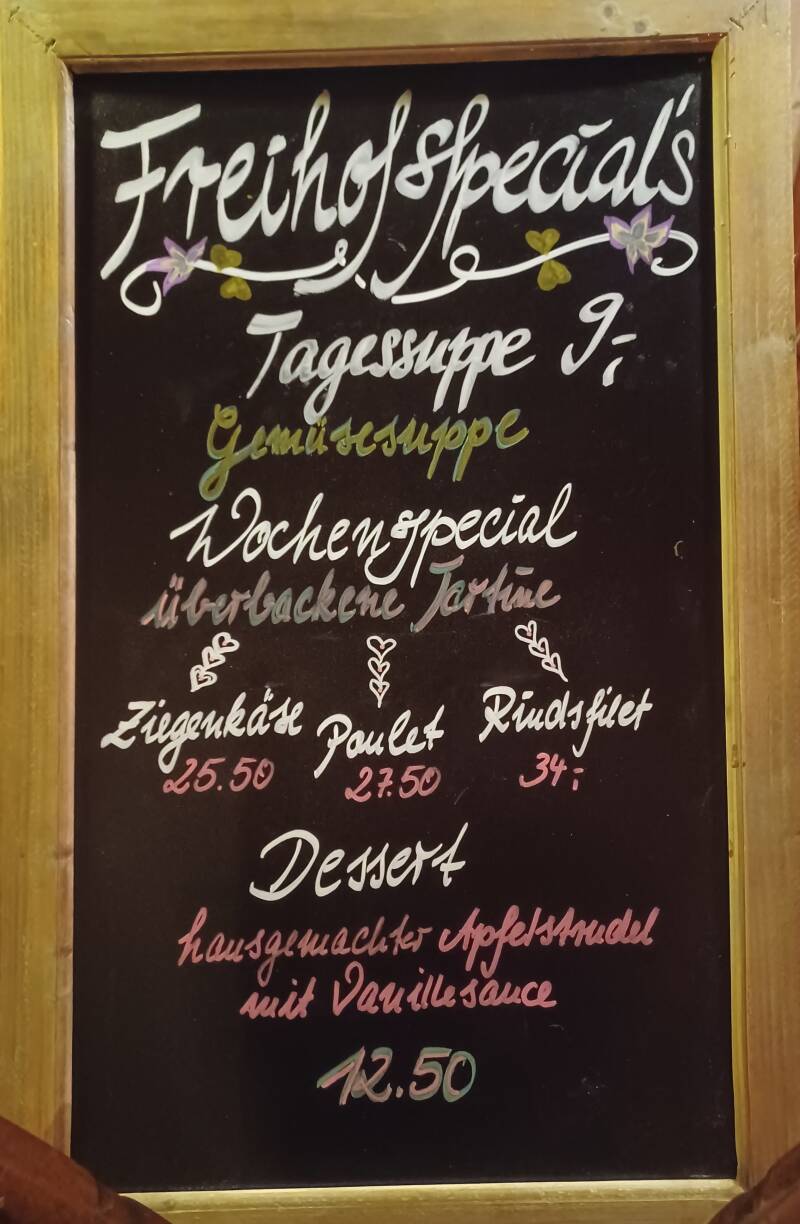 Freihofspecial's
Tagessuppe 9.-
Gemüsesuppe
Wochenspecial
überbackene Tartine
Ziegenkäse Poulet Rindsfilet
25.50 27.50 34.-
Dessert
hausgemachter Apfelstrudel
mit Vanillesauce
12.50